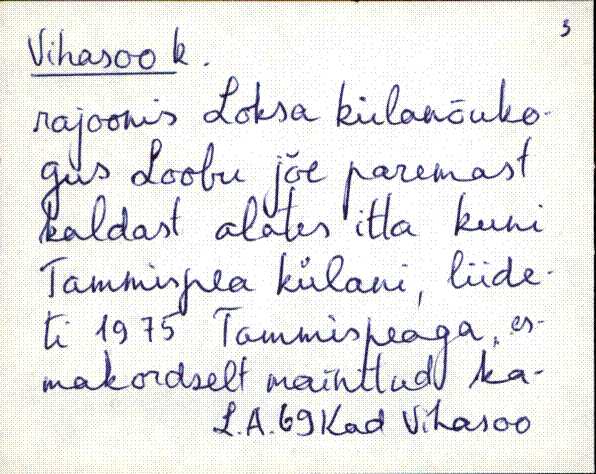 3
Vihasoo k.
rajoonis Loksa külanõuko-
gus Loobu jõe paremast
kaldast alates itta kuni
Tammispea külani, liide-
ti 1975 Tammispeaga, es-
makordselt mainitud ka-
L.A.69 Kad Vihasoo